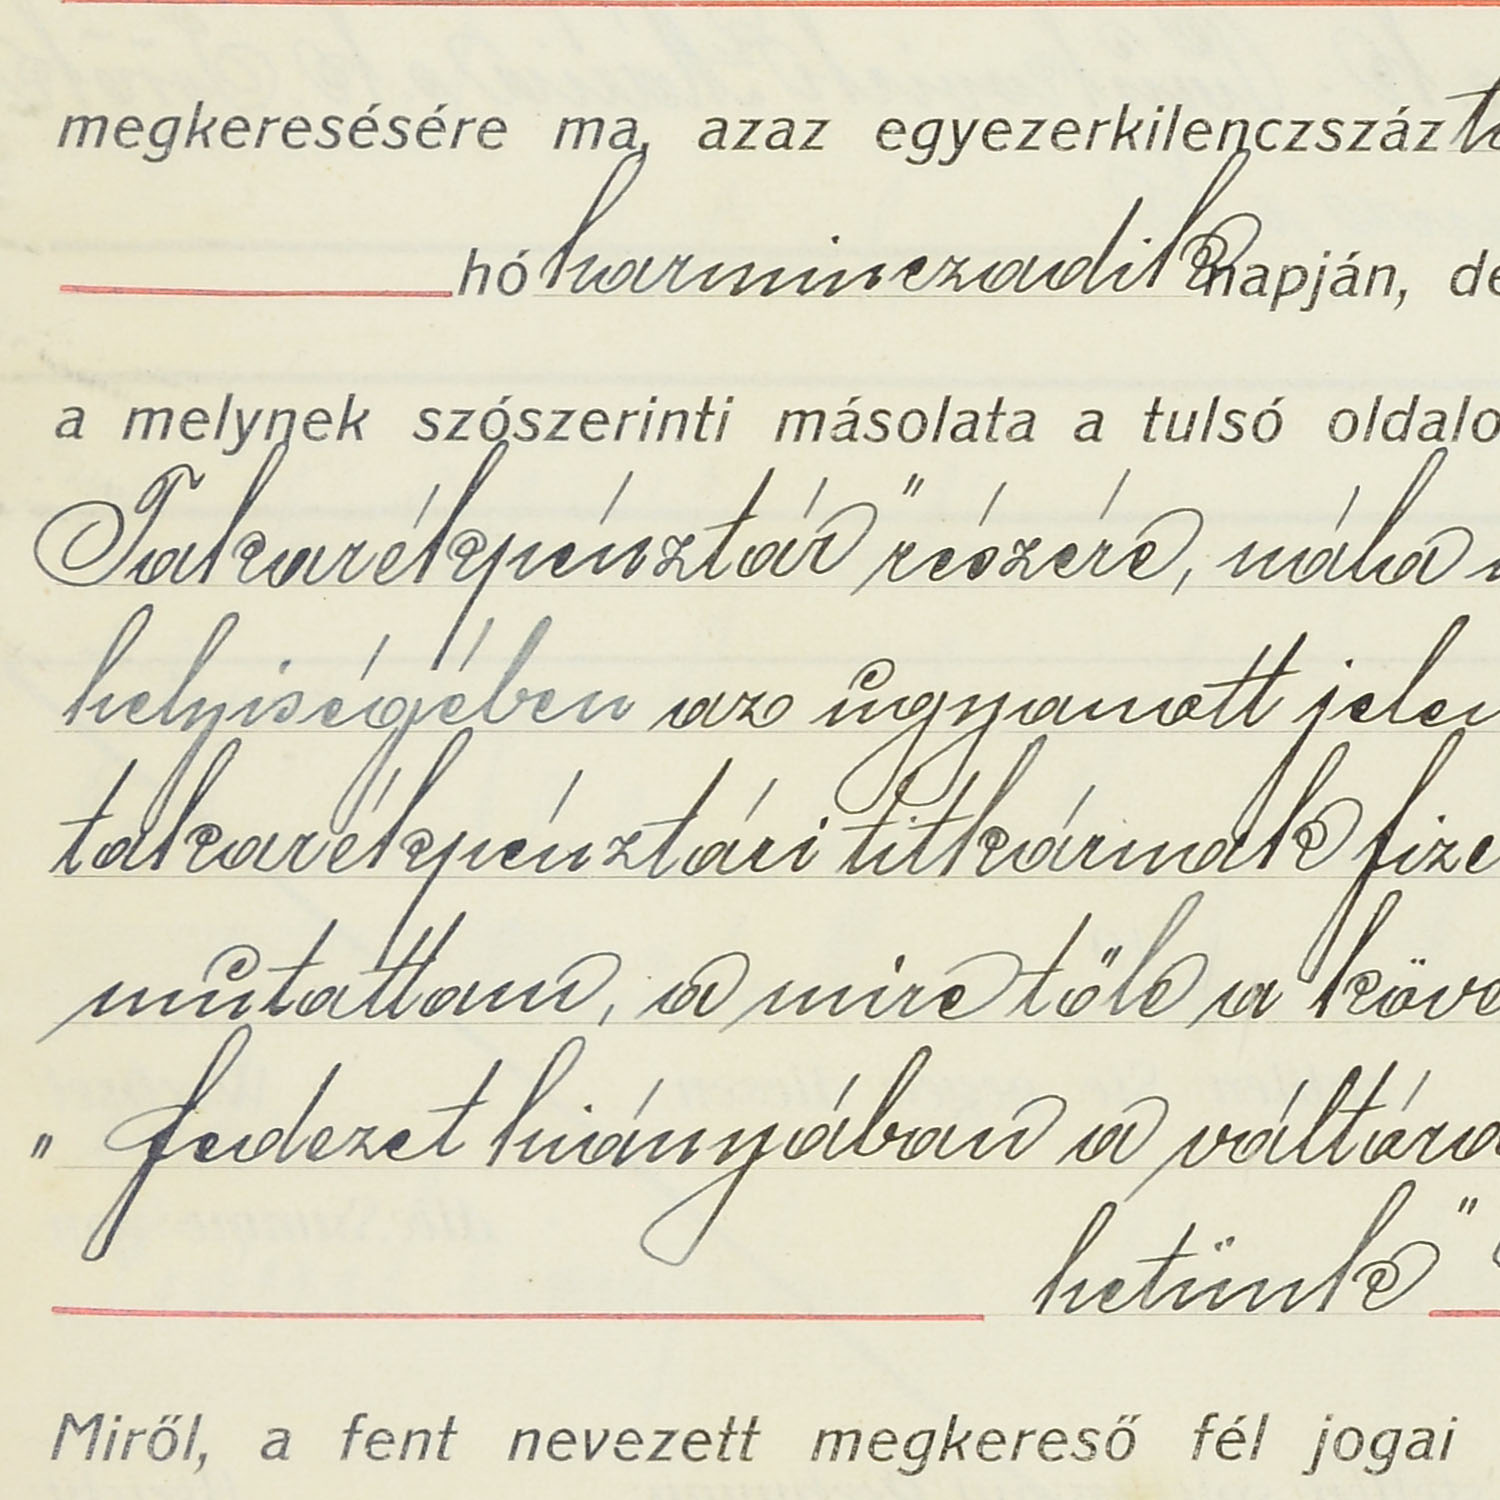 megkeresésére ma, azaz egyezerkilenczszáz
hó harminczadik napján, de
a melynek szószerinti másolata a tulsó oldalo
Takarékpénztár" részére, nála
helyiségében az ugyanott jelen
takarékpénztári titkárnak fize
mutattam, a mire tőle a köve
" fedezet hiányában a váltára
hetünk"
Miről, a fent nevezett megkereső fél jogai